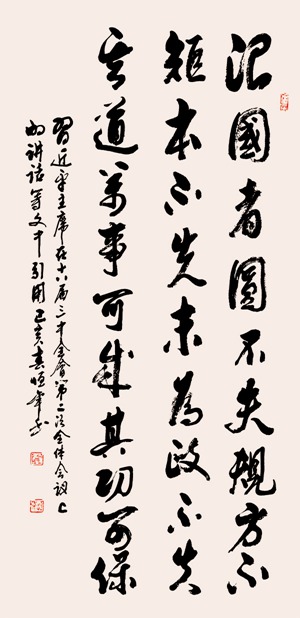 治國者圓不失規方不
矩本不失末為政不失
其道萬事可成其功可保
習近平主席在十八届三中全會第二次全体会议上
的讲话等文中引用己亥春恒年书